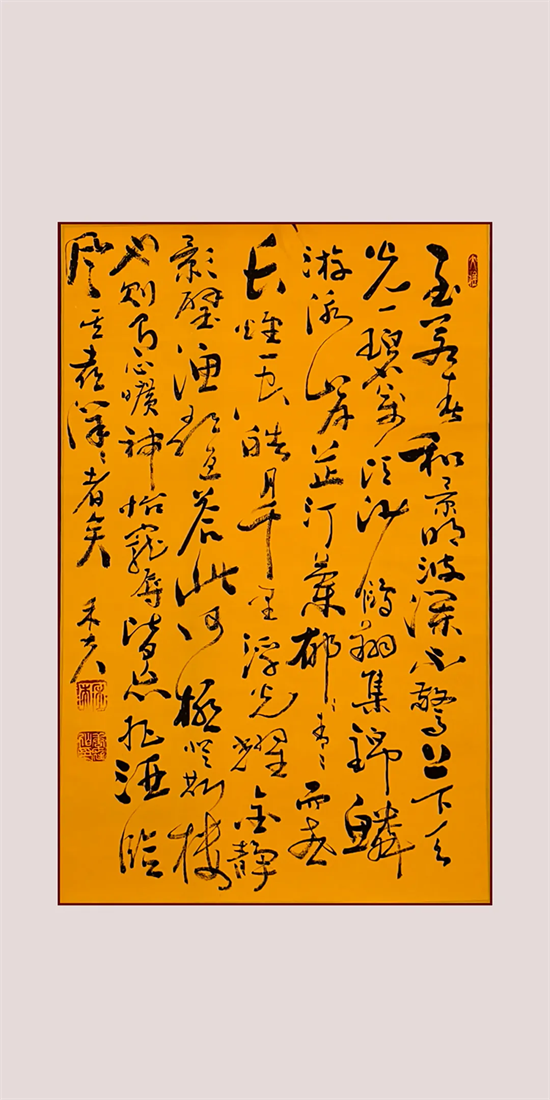 至若春和景明波瀾不驚上下天
光一碧萬頃沙鷗翔集錦鱗
游泳岸芷汀蘭郁郁青青而或
長煙一空皓月千里浮光耀金靜
影璧漁歌互答此何極登斯樓
也則有心曠神怡寵辱皆忘把酒臨
風其喜洋洋者矣